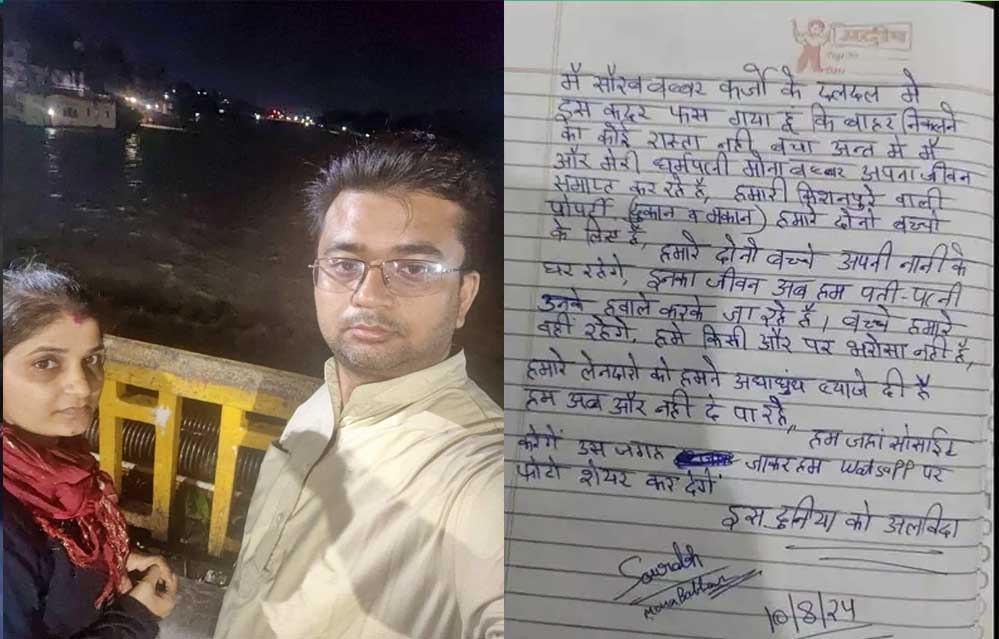 मै सौरव बब्बर कर्जो के दलदल मे
इस कदर फस गया हूं कि बाहर निकलने
का कोई रास्ता नही बचा अन्त मे मै
और मेरी धर्मपत्नी मोना बब्बर अपना जीवन
समाप्त कर रहे है, हमारी किशनपुरे वाली
प्रोपर्टी (दुकान व मकान) हमारे दोनो बच्चो
के लिए है, हमारे दोनो बच्चे अपनी नानी के
घर रहेगे, इनका जीवन अब हम पती-पत्नी
उनके हवाले करके जा रहे है। बच्चे हमारे
वही रहेगे, हमे किसी और पर भरोसा नही है,
हमारे लेनदारो को हमने अंधाधुंध ब्याजे दी है
हम अब और नही दे पा रहे,
हम जहां सोसाईट
करेगें उस जगह जाकर हम Watsaff पर
फोटो शेयर कर देगें
इस दुनिया को अलविदा
Sourabh
Mona Babbar
10/8/24